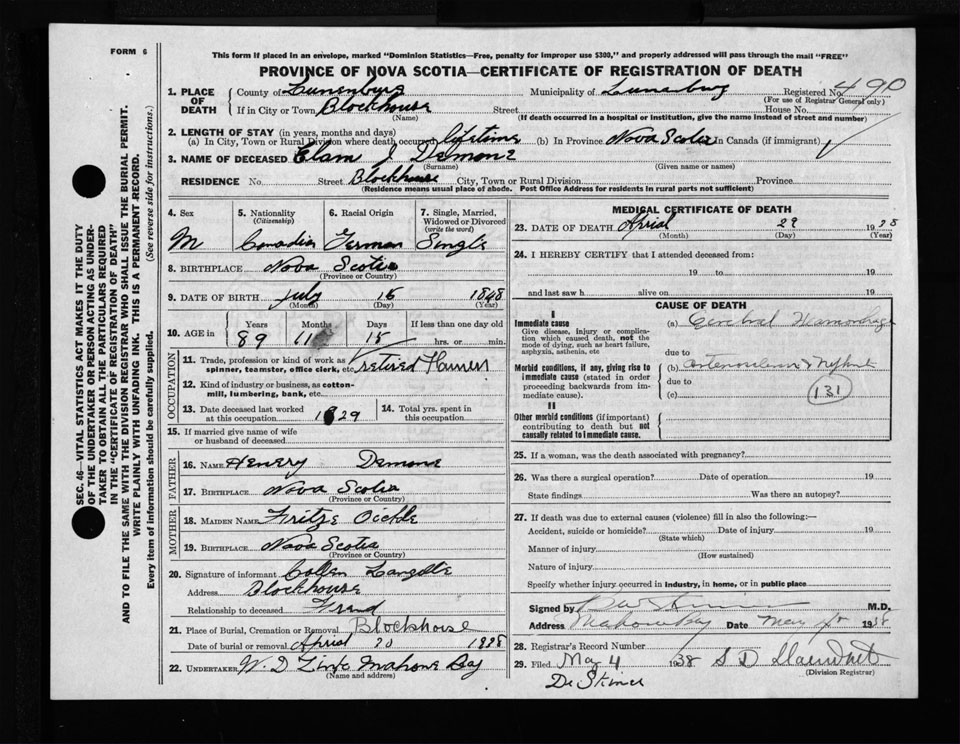 FORM 6
This form if placed in an envelope, marked "Dominion Statistics—Free, penalty for improper use $300," and properly addressed will pass through the mail "FREE"
PROVINCE OF NOVA SCOTIA—CERTIFICATE OF REGISTRATION OF DEATH
SEC. 46—VITAL STATISTICS ACT MAKES IT THE DUTY
OF THE UNDERTAKER OR PERSON ACTING AS UNDER-
TAKER TO OBTAIN ALL THE PARTICULARS REQUIRED
IN THE "CERTIFICATE OF REGISTRATION OF DEATH"
AND TO FILE THE SAME WITH THE DIVISION REGISTRAR WHO SHALL ISSUE THE BURIAL PERMIT.
WRITE PLAINLY WITH UNFADING INK. THIS IS A PERMANENT RECORD.
Every item of information should be carefully supplied. (See reverse side for instructions.)
1. PLACE OF DEATH
County of Lunenburg Municipality of Lunenburg Registered No. 490
(For use of Registrar General only)
If in City or Town Blockhouse Street House No.
(Name) (If death occurred in a hospital or institution, give the name instead of street and number)
2. LENGTH OF STAY (in years, months and days)
(a) In City, Town or Rural Division where death occurred lifetime (b) In Province Nova Scotia In Canada (if immigrant)
3. NAME OF DECEASED Elam J Demone
(Surname) (Given name or names)
RESIDENCE No. Street Blockhouse City, Town or Rural Division Province
(Residence means usual place of abode. Post Office Address for residents in rural parts not sufficient)
4. Sex M
5. Nationality (Citizenship) Canadian
6. Racial Origin German
7. Single, Married, Widowed or Divorced (write the word) Single
8. BIRTHPLACE Nova Scotia
(Province or Country)
9. DATE OF BIRTH July 15 1848
(Month) (Day) (Year)
10. AGE in Years Months Days If less than one day old
89 18 hrs. or min.
OCCUPATION
11. Trade, profession or kind of work as spinner, teamster, office clerk, etc. retired
12. Kind of industry or business, as cotton-mill, lumbering, bank, etc.
13. Date deceased last worked at this occupation 1929
14. Total yrs. spent in this occupation
15. If married give name of wife or husband of deceased
FATHER
16. NAME Henery Demone
17. BIRTHPLACE Nova Scotia
(Province or Country)
MOTHER
18. MAIDEN NAME
19. BIRTHPLACE Nova Scotia
(Province or Country)
20. Signature of informant
Address Blockhouse
Relationship to deceased Frend
21. Place of Burial, Cremation or Removal Blockhouse
Date of burial or removal Aprial
22. UNDERTAKER W. D Zink Mahone Bay
(Name and address)
MEDICAL CERTIFICATE OF DEATH
23. DATE OF DEATH Aprial 29 1938
(Month) (Day) (Year)
24. I HEREBY CERTIFY that I attended deceased from:
19 to 19
and last saw h alive on 19
CAUSE OF DEATH
I
Immediate cause
Give disease, injury or complication which caused death, not the mode of dying, such as heart failure, asphyxia, asthenia, etc
(a) Cerebral Hemorrhage
due to
Morbid conditions, if any, giving rise to immediate cause (stated in order proceeding backwards from immediate cause).
(b)
due to
(c)
131
II
Other morbid conditions (if important) contributing to death but not causally related to immediate cause.
25. If a woman, was the death associated with pregnancy?
26. Was there a surgical operation? Date of operation 19
State findings Was there an autopsy?
27. If death was due to external causes (violence) fill in also the following:—
Accident, suicide or homicide? Date of injury 19
(State which)
Manner of injury
(How sustained)
Nature of injury
Specify whether injury occurred in industry, in home, or in public place
Signed by M.D.
Address Mahone Bay Date May 1938
28. Registrar's Record Number
29. Filed May 4 1938 S D
(Division Registrar)